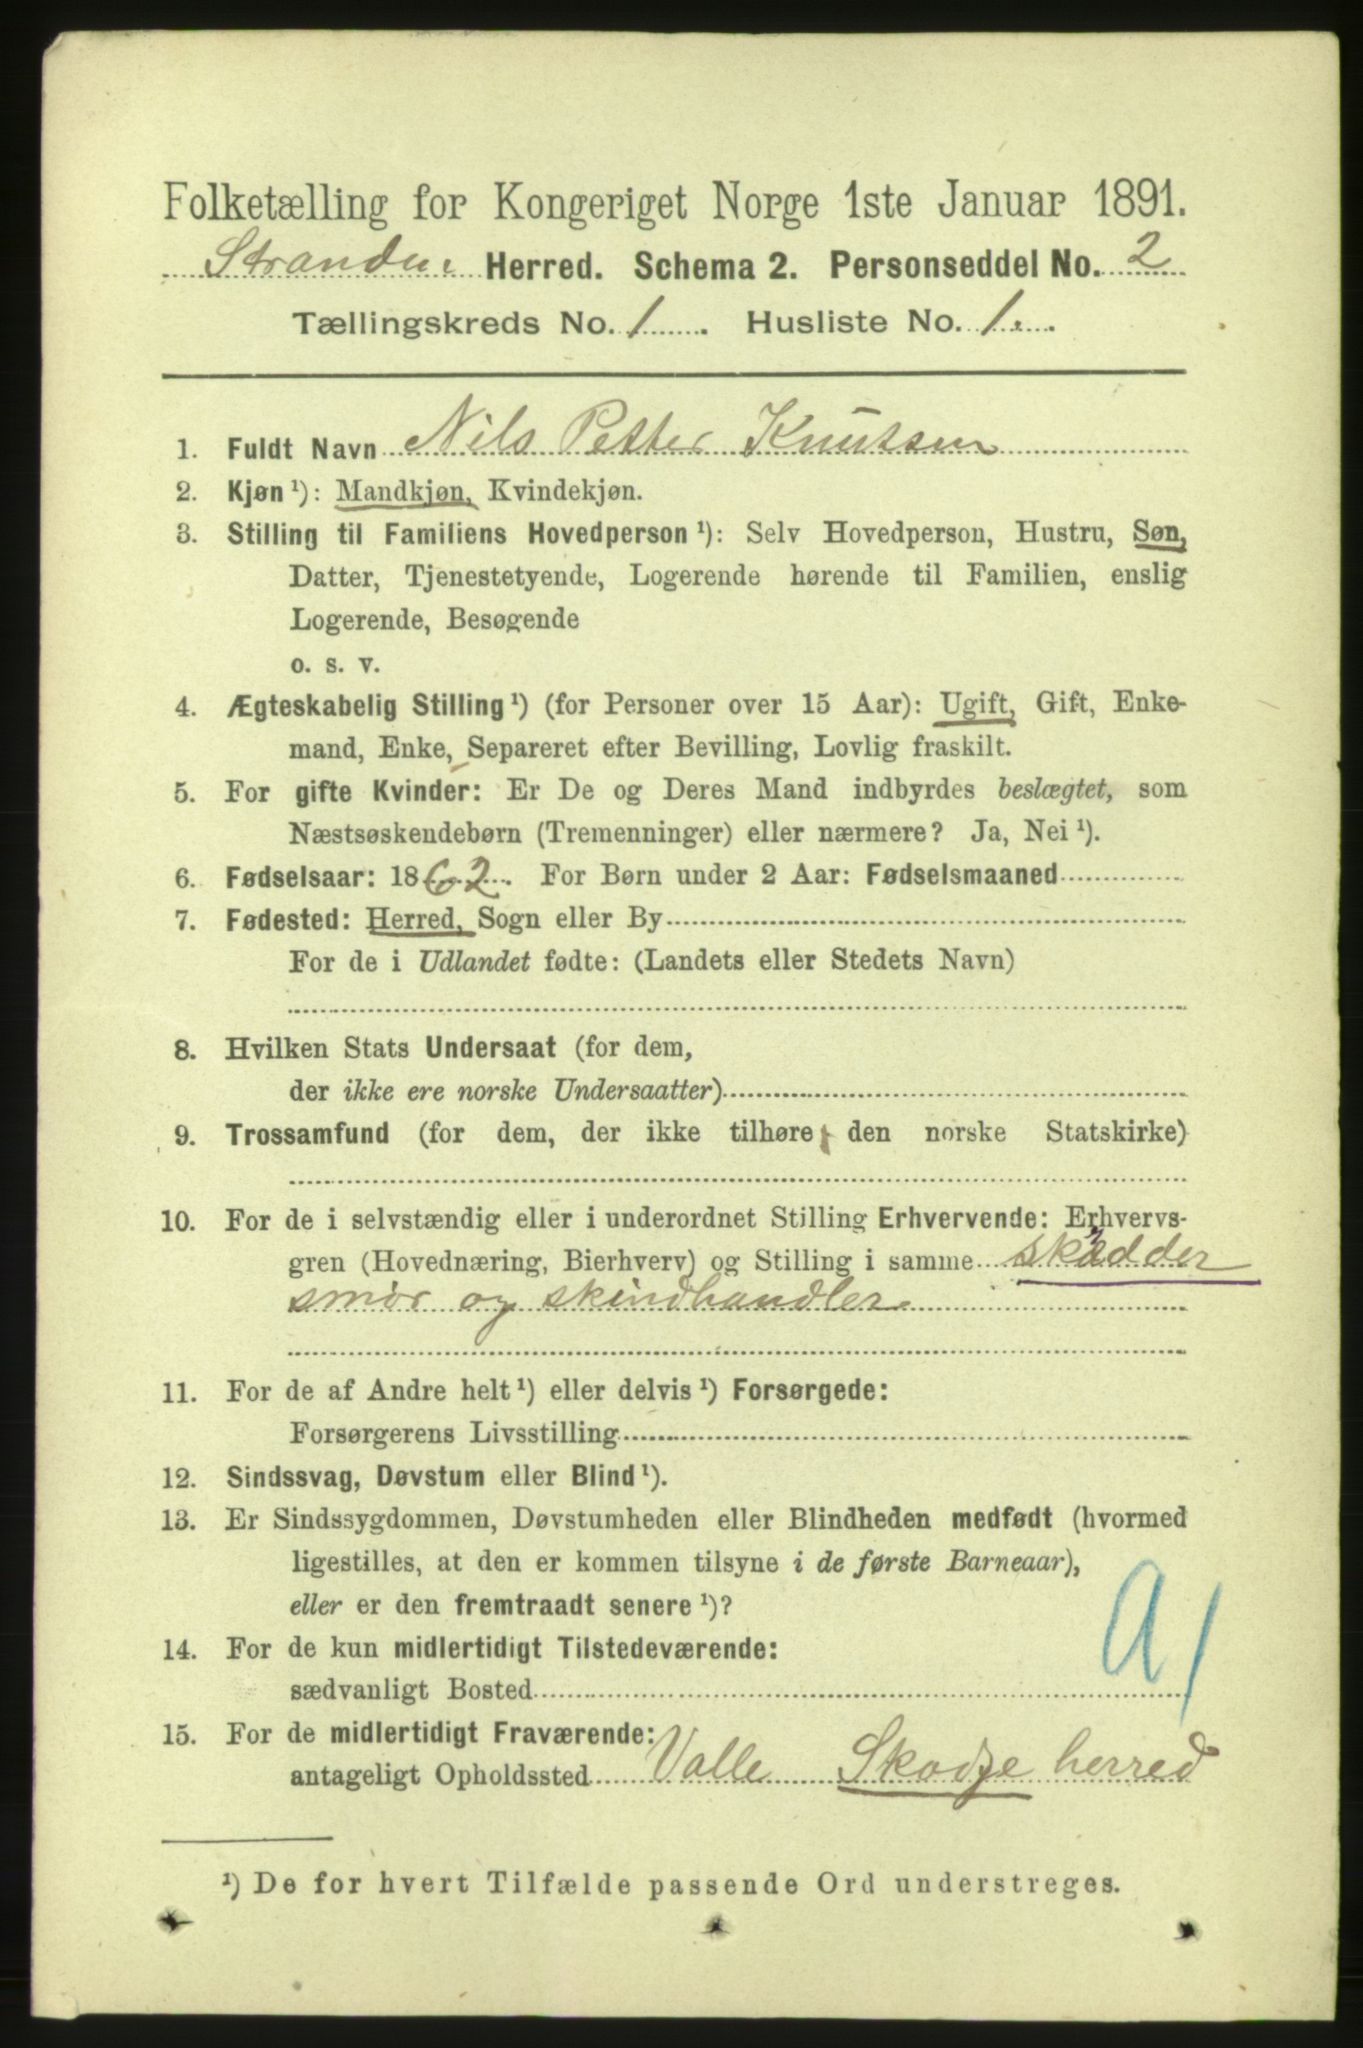 Folketælling for Kongeriget Norge 1ste Januar 1891.
Stranden Herred. Schema 2. Personseddel No. 2
Tællingskreds No. 1. Husliste No. 1.
1. Fuldt Navn Nils Petter Knutsen
2. Kjøn ¹): Mandkjøn, Kvindekjøn.
3. Stilling til Familiens Hovedperson ¹): Selv Hovedperson, Hustru, Søn,
Datter, Tjenestetyende, Logerende hørende til Familien, enslig
Logerende, Besøgende
o. s. v.
4. Ægteskabelig Stilling ¹) (for Personer over 15 Aar): Ugift, Gift, Enke-
mand, Enke, Separeret efter Bevilling, Lovlig fraskilt.
5. For gifte Kvinder: Er De og Deres Mand indbyrdes beslægtet, som
Næstsøskendebørn (Tremenninger) eller nærmere? Ja, Nei ¹).
6. Fødselsaar: 1862. For Børn under 2 Aar: Fødselsmaaned
7. Fødested: Herred, Sogn eller By
For de i Udlandet fødte: (Landets eller Stedets Navn)
8. Hvilken Stats Undersaat (for dem,
der ikke ere norske Undersaatter)
9. Trossamfund (for dem, der ikke tilhøre den norske Statskirke)
10. For de i selvstændig eller i underordnet Stilling Erhvervende: Erhvervs-
gren (Hovednæring, Bierhverv) og Stilling i samme
smör og skindhandler
11. For de af Andre helt ¹) eller delvis ¹) Forsørgede:
Forsørgerens Livsstilling
12. Sindssvag, Døvstum eller Blind ¹).
13. Er Sindssygdommen, Døvstumheden eller Blindheden medfødt (hvormed
ligestilles, at den er kommen tilsyne i de første Barneaar),
eller er den fremtraadt senere ¹)?
14. For de kun midlertidigt Tilstedeværende:
sædvanligt Bosted
15. For de midlertidigt Fraværende:
antageligt Opholdssted Valle Skodje herred
¹) De for hvert Tilfælde passende Ord understreges.